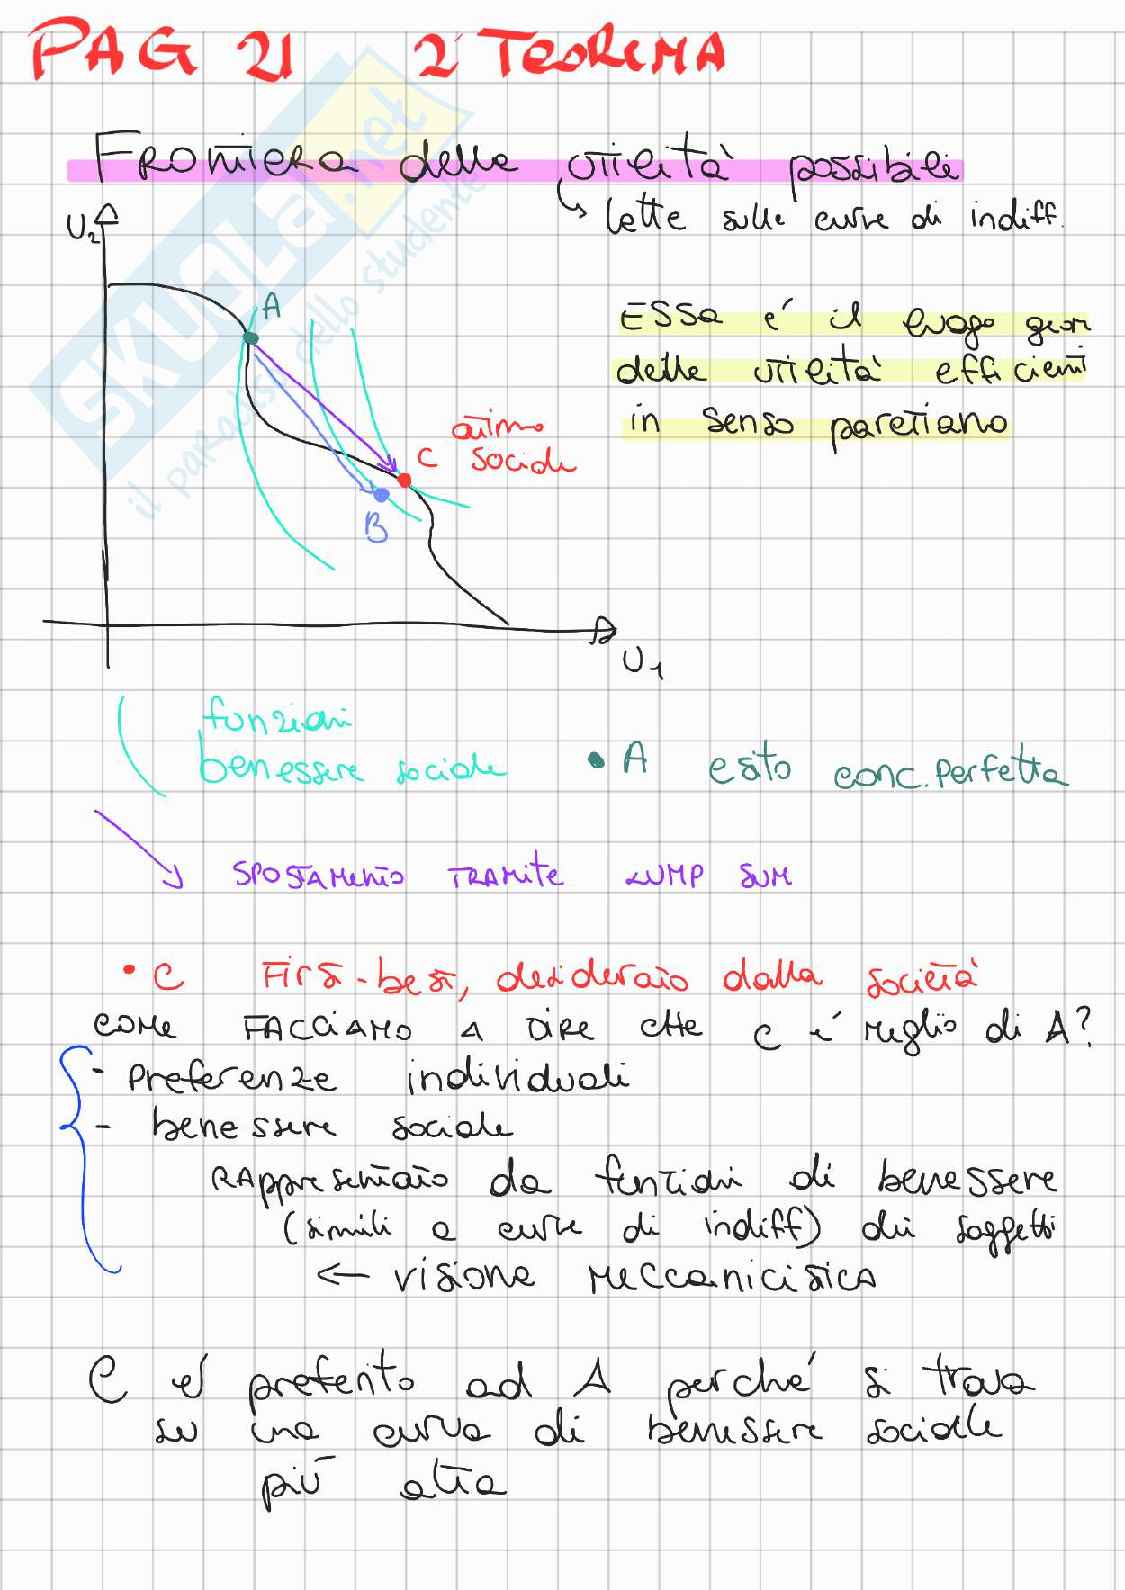 PAG 21 2° TEOREMA
Frontiera delle utilità possibili
↳ lette sulle curve di indiff.
U₂
A
ESSA é il luogo geom
delle utilità efficienti
in senso paretiano
ottimo
C sociale
B
U₁
funzioni
benessere sociale
• A esito conc. perfetta
SPOSTAMENTO TRAMITE LUMP SUM
• C First-best, desiderato dalla società
COME FACCIAMO A DIRE CHE C é meglio di A?
- Preferenze individuali
- benessere sociale
RAppresentato da funzioni di benessere
(simili a curve di indiff) dei soggetti
← visione meccanicistica
C é preferito ad A perché si trova
su una curva di benessere sociale
più alta
SKUOLA.net
il paradiso dello studente